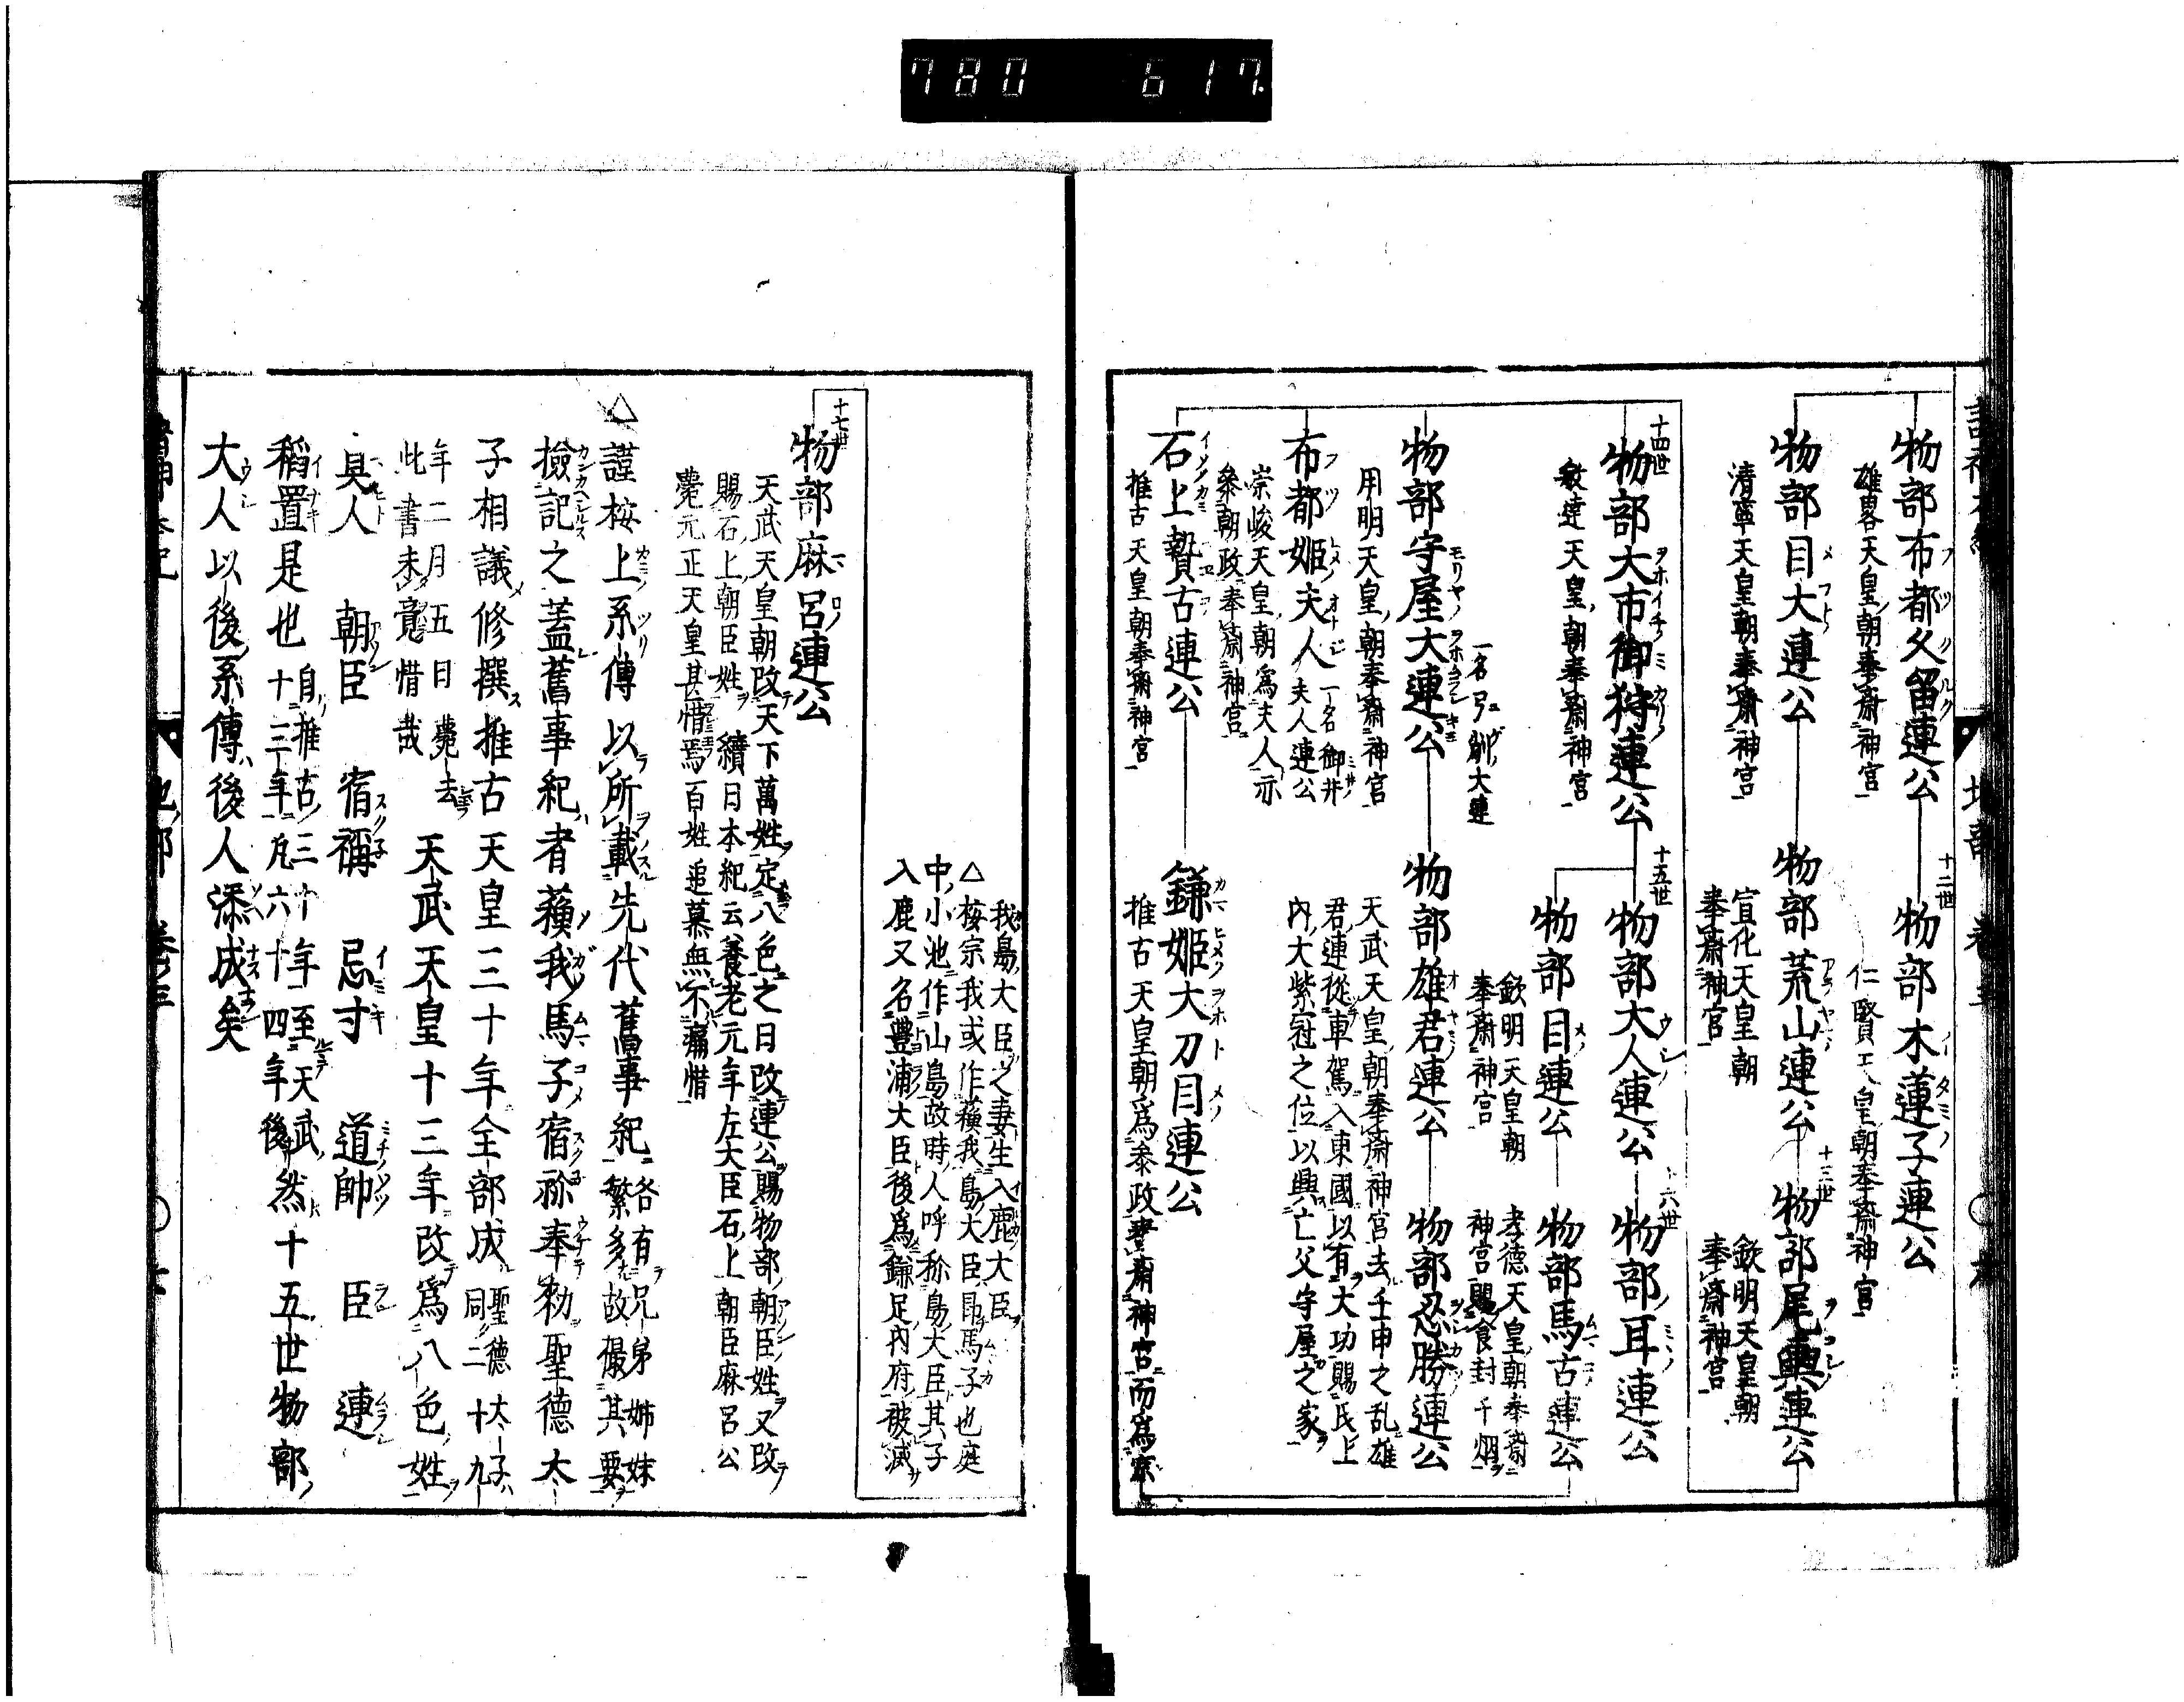 780 617.
物部布都久留連公
雄畧天皇朝奉齋神宮
十二世
物部木蓮子連公
仁賢天皇朝奉齋神宮
物部目大連公
清寧天皇朝奉齋神宮
物部荒山連公
宣化天皇朝
奉齋神宮
十三世
物部尾輿連公
欽明天皇朝
奉齋神宮
十四世
物部大市御狩連公
敏達天皇朝奉齋神宮
十五世
物部大人連公
十六世
物部耳連公
物部目連公
欽明天皇朝
奉齋神宮
物部馬古連公
孝德天皇朝奉齋
神宮賜食封千烟
物部守屋大連公
一名弓削大連
用明天皇朝奉齋神宮
物部雄君連公
天武天皇朝奉齋神宮去壬申之乱雄
君連從車駕入東國以有大功賜氏上
内大紫冠之位以興亡父守屋之家
物部忍勝連公
布都姬夫人
一名御井
夫人連公
崇峻天皇朝爲夫人亦
叅朝政奉齋神宮
石上贄古連公
推古天皇朝奉齋神宮
鎌姬大刀目連公
推古天皇朝爲叅政奉齋神宮而爲宗
我島大臣之妻生入鹿大臣
△桉宗我或作蘓我島大臣昂馬子也庭
中小池作山島故時人呼称島大臣其子
入鹿又名豐浦大臣後爲鎌足内府被滅
十七世
物部麻呂連公
天武天皇朝改天下萬姓定八色之日改連公賜物部朝臣姓又改
賜石上朝臣姓 續日本紀云養老元年左大臣石上朝臣麻呂公
薨元正天皇甚惜焉百姓追慕無不痛惜
△謹桉上系傳以所載先代舊事紀各有兄弟姉妹
繁多故撮其要
撿記之蓋舊事紀者蘓我馬子宿祢奉勑聖德太
子相議修撰推古天皇三十年全部成聖德太子八
同二十九
年二月五日薨去
此書未竟惜哉
天武天皇十三年改爲八色姓
眞人 朝臣 宿禰 忌寸 道師 臣 連
稲置是也自推古三十年至天武
十三年凡六十四年後然十五世物部
大人以後系傳後人添成矣